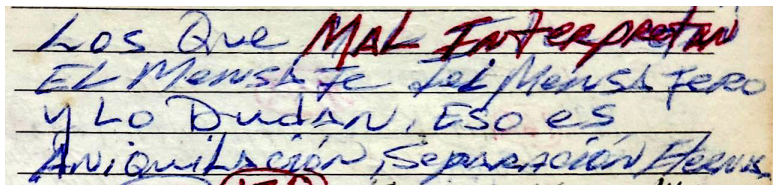 Los Que MAL Interpretan
EL MensaJe del MensaJero
y Lo DudaN, Eso es
ANiQuiLación, Separación Eterna